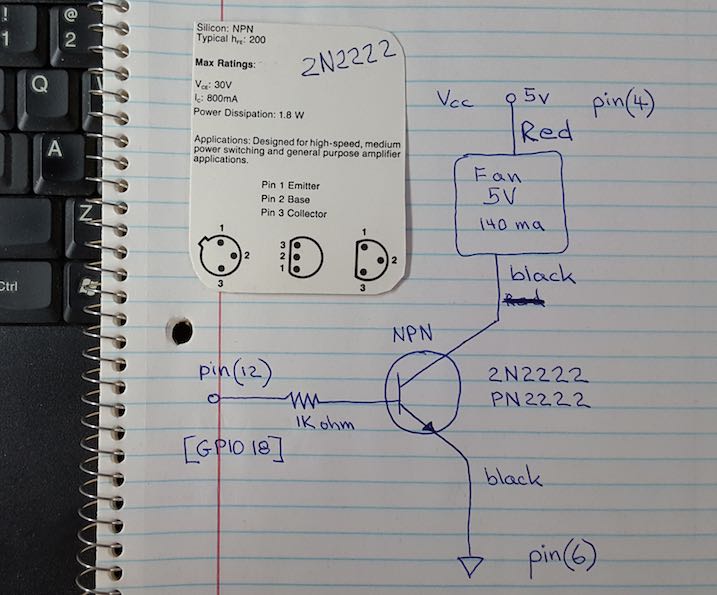 !
1
@
2
Q
A
Z
Ctrl
Silicon: NPN
Typical hFE: 200
2N2222
Max Ratings:
VCE: 30V
IC: 800mA
Power Dissipation: 1.8 W
Applications: Designed for high-speed, medium
power switching and general purpose amplifier
applications.
Pin 1 Emitter
Pin 2 Base
Pin 3 Collector
1
2
3
3
2
1
1
2
3
Vcc 5v pin(4)
Red
Fan
5V
140 ma
black
Red
NPN
pin(12)
2N2222
PN2222
1K ohm
[GPIO 18]
black
pin(6)